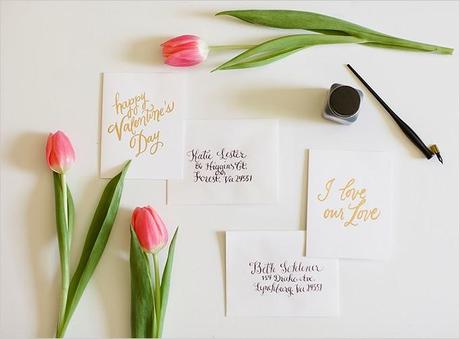 happy
Valentine's
Day
Katie Lester
86 Higgins Ct.
Forest, Va 24551
I love
our Love
Beth Schlener
159 Drake Ave.
Lynchburg, Va 24551